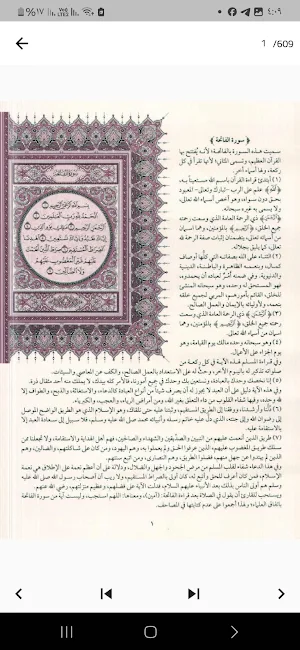 ٤:٠٩
%١٧
1 /609
﴿ سورة الفاتحة ﴾
سميت هذه السورة بالفاتحة؛ لأنه يُفتتح بها
القرآن العظيم، وتسمى المثاني؛ لأنها تقرأ في كل
ركعة، ولها أسماء أخر.
(١) أبتدئ قراءة القرآن باسم الله مستعينا به،
﴿اللهِ﴾ علم على الرب -تبارك وتعالى- المعبود
بحق دون سواه، وهو أخص أسماء الله تعالى،
ولا يسمى به غيره سبحانه.
﴿الرَّحْمَنِ﴾ ذي الرحمة العامة الذي وسعت رحمته
جميع الخلق، ﴿الرَّحِيمِ﴾ بالمؤمنين، وهما اسمان
من أسمائه تعالى، يتضمنان إثبات صفة الرحمة لله
تعالى كما يليق بجلاله.
(٢) الثناء على الله بصفاته التي كلُّها أوصاف
كمال، وبنعمه الظاهرة والباطنة، الدينية
والدنيوية، وفي ضمنه أمْرٌ لعباده أن يحمدوه،
فهو المستحق له وحده، وهو سبحانه المنشئ
للخلق، القائم بأمورهم، المربي لجميع خلقه
بنعمه، ولأوليائه بالإيمان والعمل الصالح.
(٣) ﴿الرَّحْمَنِ﴾ ذي الرحمة العامة الذي وسعت
رحمته جميع الخلق، ﴿الرَّحِيمِ﴾ بالمؤمنين، وهما
اسمان من أسماء الله تعالى.
(٤) وهو سبحانه وحده مالك يوم القيامة، وهو
يوم الجزاء على الأعمال.
وفي قراءة المسلم لهذه الآية في كل ركعة من
صلواته تذكير له باليوم الآخر، وحثٌّ له على الاستعداد بالعمل الصالح، والكف عن المعاصي والسيئات.
(٥) إنا نخصك وحدك بالعبادة، ونستعين بك وحدك في جميع أمورنا، فالأمر كله بيدك، لا يملك منه أحد مثقال ذرة.
وفي هذه الآية دليل على أن العبد لا يجوز له أن يصرف شيئًا من أنواع العبادة كالدعاء والاستغاثة والذبح والطواف إلا
لله وحده، وفيها شفاء القلوب من داء التعلق بغير الله، ومن أمراض الرياء والعجب، والكبرياء.
(٦) دُلَّنا، وأرشدنا، ووفقنا إلى الطريق المستقيم، وثبتنا عليه حتى نلقاك، وهو الإسلام الذي هو الطريق الواضح الموصل
إلى رضوان الله وإلى جنته، الذي دلّ عليه خاتم رسله وأنبيائه محمد صلى الله عليه وسلم، فلا سبيل إلى سعادة العبد إلا
بالاستقامة عليه.
(٧) طريق الذين أنعمت عليهم من النبيين والصدِّيقين والشهداء والصالحين، فهم أهل الهداية والاستقامة، ولا تجعلنا ممن
سلك طريق المغضوب عليهم، الذين عرفوا الحق ولم يعملوا به، وهم اليهود، ومن كان على شاكلتهم، والضالين، وهم
الذين لم يهتدوا عن جهل منهم، فضلوا الطريق، وهم النصارى، ومن اتبع سنتهم.
وفي هذا الدعاء شفاء لقلب المسلم من مرض الجحود والجهل والضلال، ودلالة على أن أعظم نعمة على الإطلاق هي نعمة
الإسلام، فمن كان أعرف للحق وأتبع له، كان أولى بالصراط المستقيم، ولا ريب أن أصحاب رسول الله صلى الله عليه
وسلم هم أولى الناس بذلك بعد الأنبياء عليهم السلام، فدلت الآية على فضلهم، وعظيم منزلتهم، رضي الله عنهم.
ويستحب للقارئ أن يقول في الصلاة بعد قراءة الفاتحة: (آمين)، ومعناها: اللهم استجب، وليست آية من سورة الفاتحة
باتفاق العلماء؛ ولهذا أجمعوا على عدم كتابتها في المصاحف.
١